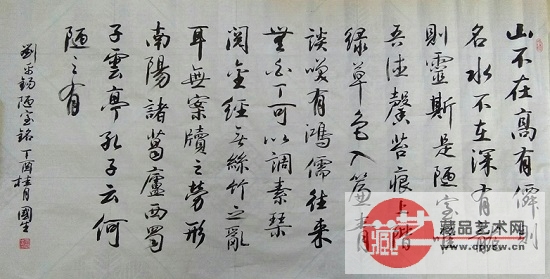 山不在高有僊則
名水不在深有龍
則靈斯是陋室惟
吾德馨苔痕上階
緑草色入簾青
談咲有鴻儒往来
無白丁可以調素琴
閲金經無絲竹之亂
耳無案牘之勞形
南陽諸葛廬西蜀
子雲亭孔子云何
陋之有
劉禹錫陋室銘丁酉桂月國
藏品艺术网